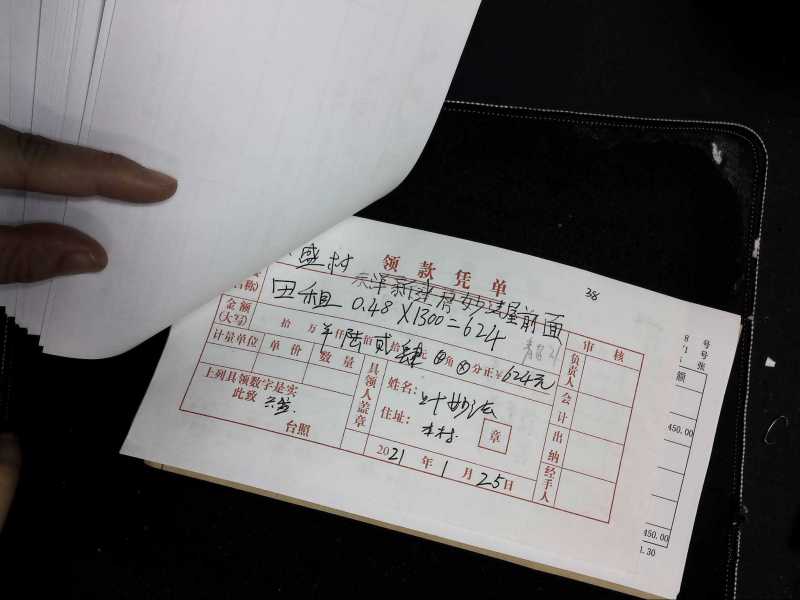 盛村
领款凭单
38
田租 0.48×1300=624 屋前面
金额(大写) 拾 万 仟陆佰贰拾肆元⊗角⊗分正¥624元
计量单位 单价 数量
上列具领数字是实
此致
台照
具领人盖章
姓名：叶妙法
住址：本村
章
2021年1月25日
审核
负责人
会计
出纳
经手人
号
号
张
额
450.00
450.00
1.30